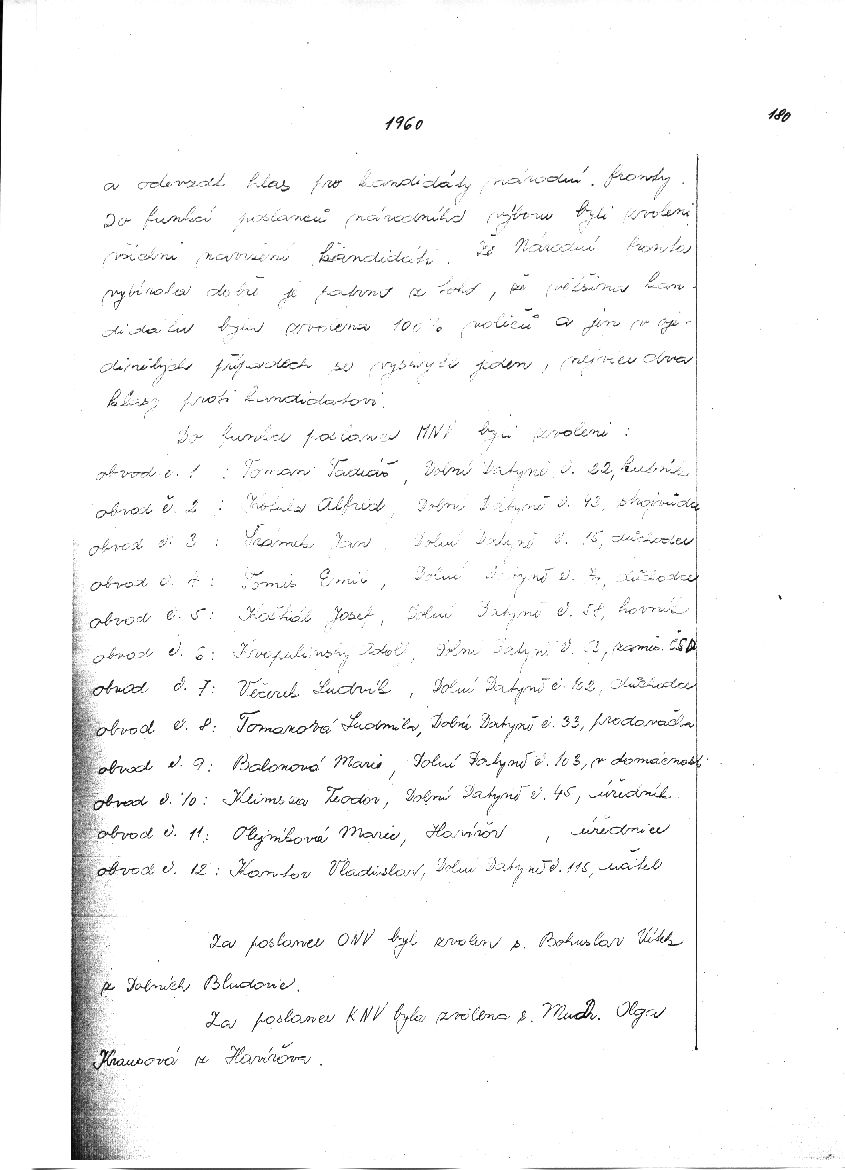 1960
180
a odevzdat hlas pro kandidáty národní fronty.
Do funkcí poslanců národního výboru byli zvoleni
všichni navržení kandidáti. Že Národní fronta
vybírala dobře je patrno z toho, že většina kan-
didátů byla zvolena 100% voličů a jen v oje-
dinělých případech se vyskytl jeden, nejvíce dva
hlasy proti kandidátovi.
Do funkce poslance MNV byli zvoleni:
obvod č. 1 : Toman Tadiáš, Dolní Datyně č. 22,
obvod č. 2 : Alfréd, Dolní Datyně č. 43,
obvod č. 3 : Šrámek Jan, Dolní Datyně č. 15, důchodce
obvod č. 4 : Tomis Emil, Dolní Datyně č. důchodce
obvod č. 5 : Josef, Dolní Datyně č. 58, horník
obvod č. 6 : Kvapulinský Adolf, Dolní Datyně č. zaměs. ČSD
obvod č. 7 : Večerek Ludvík, Dolní Datyně č. důchodce
obvod č. 8 : Tomanová Ludmila, Dolní Datyně č. 33, prodavačka
obvod č. 9 : Balonová Marie, Dolní Datyně č. 103, v domácnosti
obvod č. 10 : Klimsza Teodor, Dolní Datyně č. 45, úředník
obvod č. 11 : Olejníková Marie, Havířov, úřednice
obvod č. 12 : Kantor Vladislav, Dolní Datyně č. 115, učitel
Za poslance ONV byl zvolen s. Bohuslav Vítek
z Dolních Bludovic.
Za poslance KNV byla zvolena s. Mudr. Olga
Krausová z Havířova.